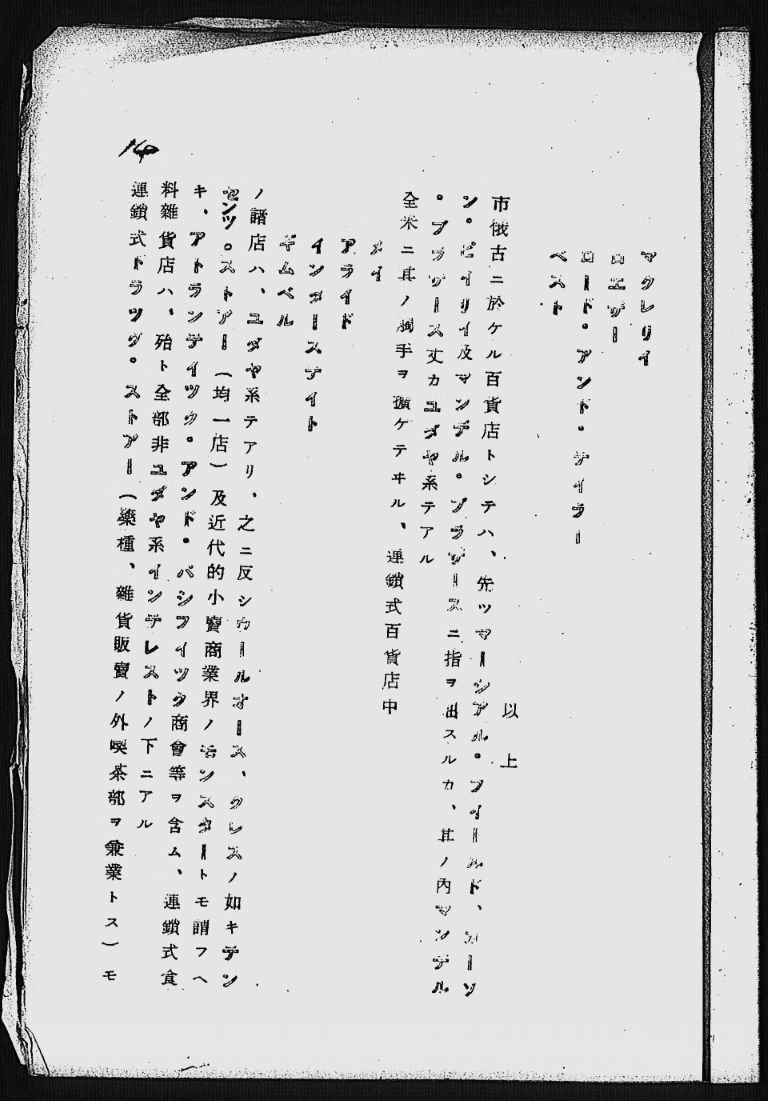 マクレリイ
ロエザー
ロード・アンド・テイラー
ベスト
以上
市俄古ニ於ケル百貨店トシテハ、先ツマーシアル・フィールド、カーソ
ン・ピイリイ及マンデル・ブラザースニ指ヲ出スルカ、其ノ内マンデル
・ブラザース丈カユダヤ系テアル
全米ニ其ノ触手ヲ擴ケテヰル、連鎖式百貨店中
メイ
アライド
インターステイト
ギムベル
ノ諸店ハ、ユダヤ系テアリ、之ニ反シウールオース、クレスノ如キテン
センツ・ストアー（均一店）及近代的小賣商業界ノモンスタートモ謂フヘ
キ、アトランテイツク・アンド・パシフイツク商會等ヲ含ム、連鎖式食
料雜貨店ハ、殆ト全部非ユダヤ系インテレストノ下ニアル
連鎖式ドラツグ・ストアー（藥種、雜貨販賣ノ外喫茶部ヲ兼業トス）モ
14